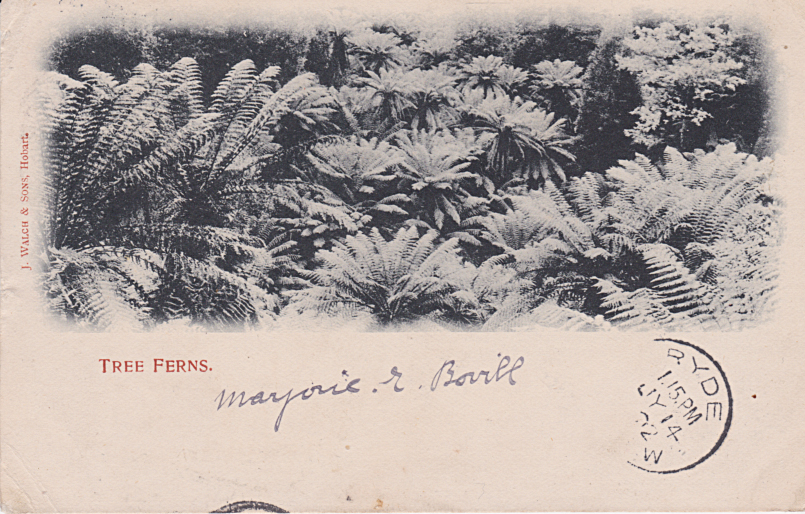 J. WALCH & SONS, Hobart.
TREE FERNS.
Marjorie. E. Bovill
RYDE
1.15.PM
JY 14